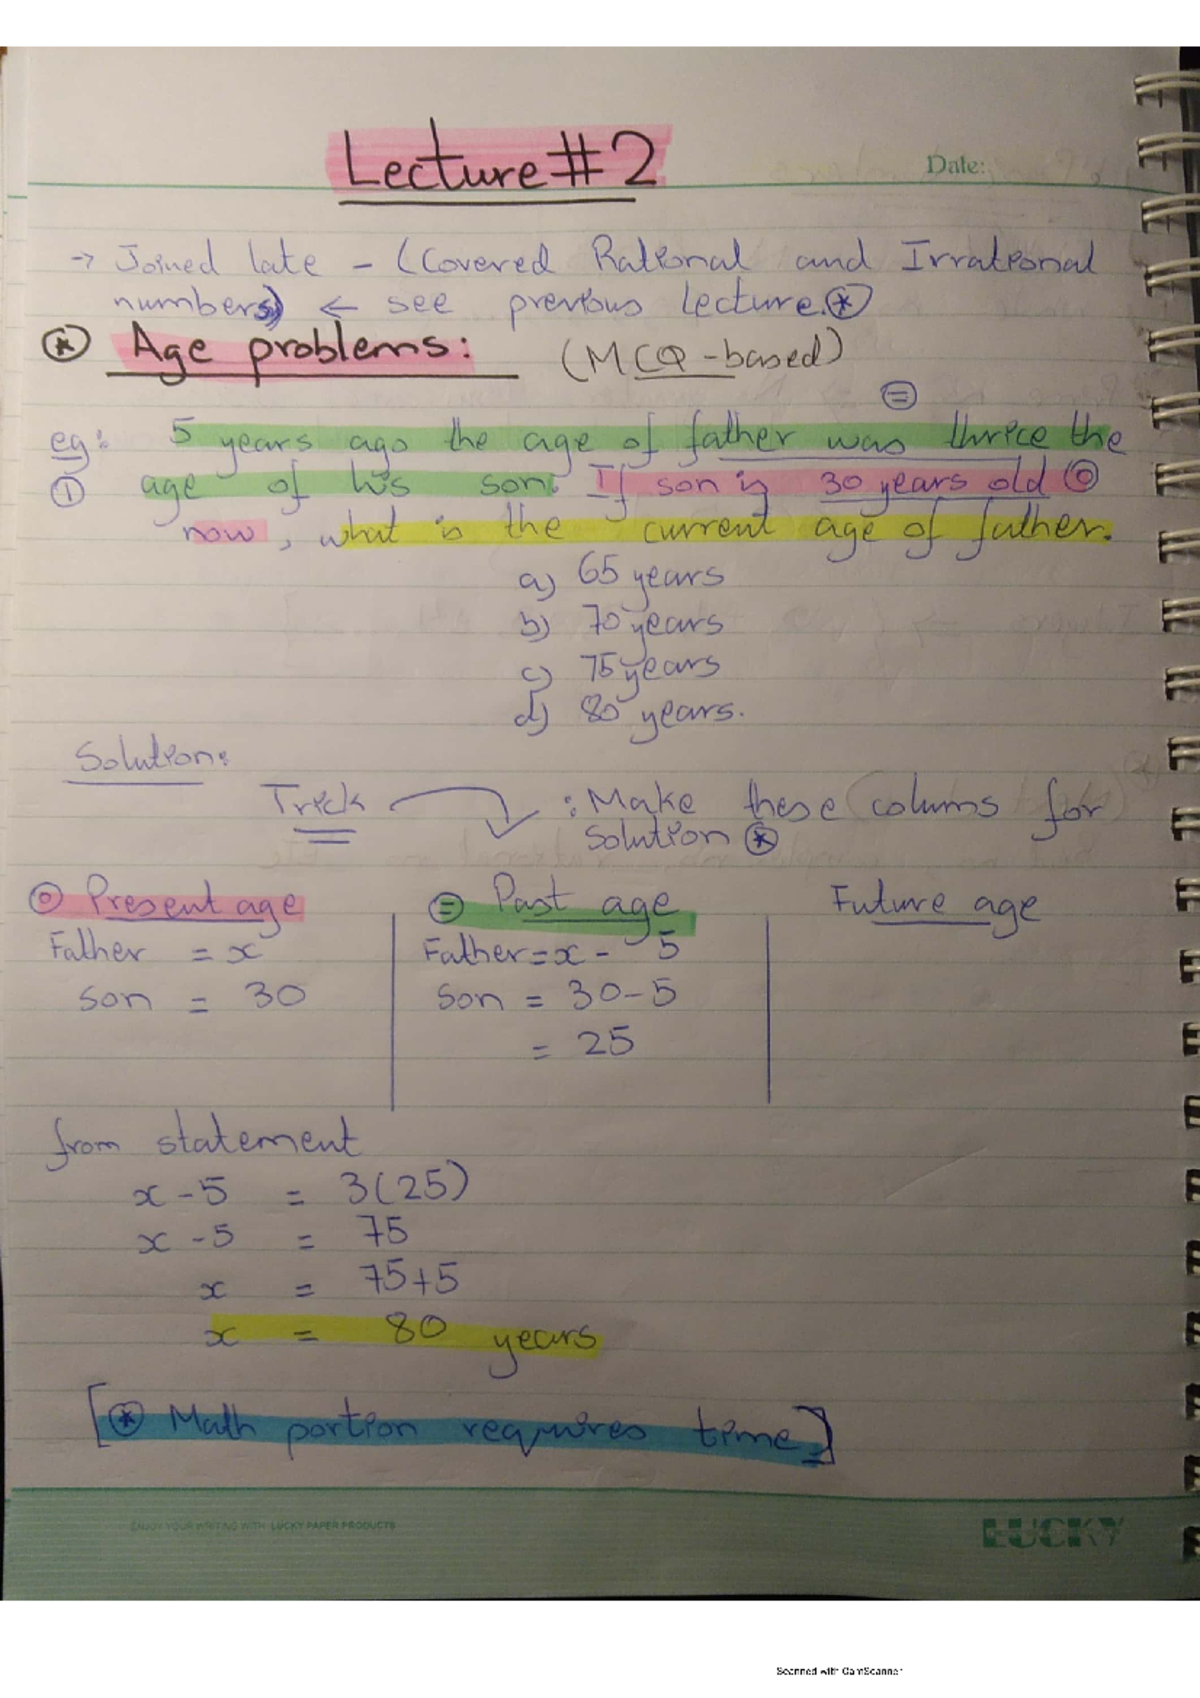 Lecture #2
Date:
→ Joined late - (Covered Rational and Irrational
numbers) ← see previous lecture. *
* Age problems: (MCQ-based)
=
eg: 5 years ago the age of father was thrice the
① age of his son. If son is 30 years old
now, what is the current age of father.
a) 65 years
b) 70 years
c) 75 years
d) 80 years.
Solution:
Trick : Make these colums for
Solution *
Present age
Father = x
son = 30
= Past age
Father = x - 5
Son = 30-5
= 25
Future age
from statement
x - 5 = 3(25)
x - 5 = 75
x = 75+5
x = 80 years
[* Math portion requires time]
ENJOY YOUR WRITING WITH LUCKY PAPER PRODUCTS
LUCKY
Scanned with CamScanner